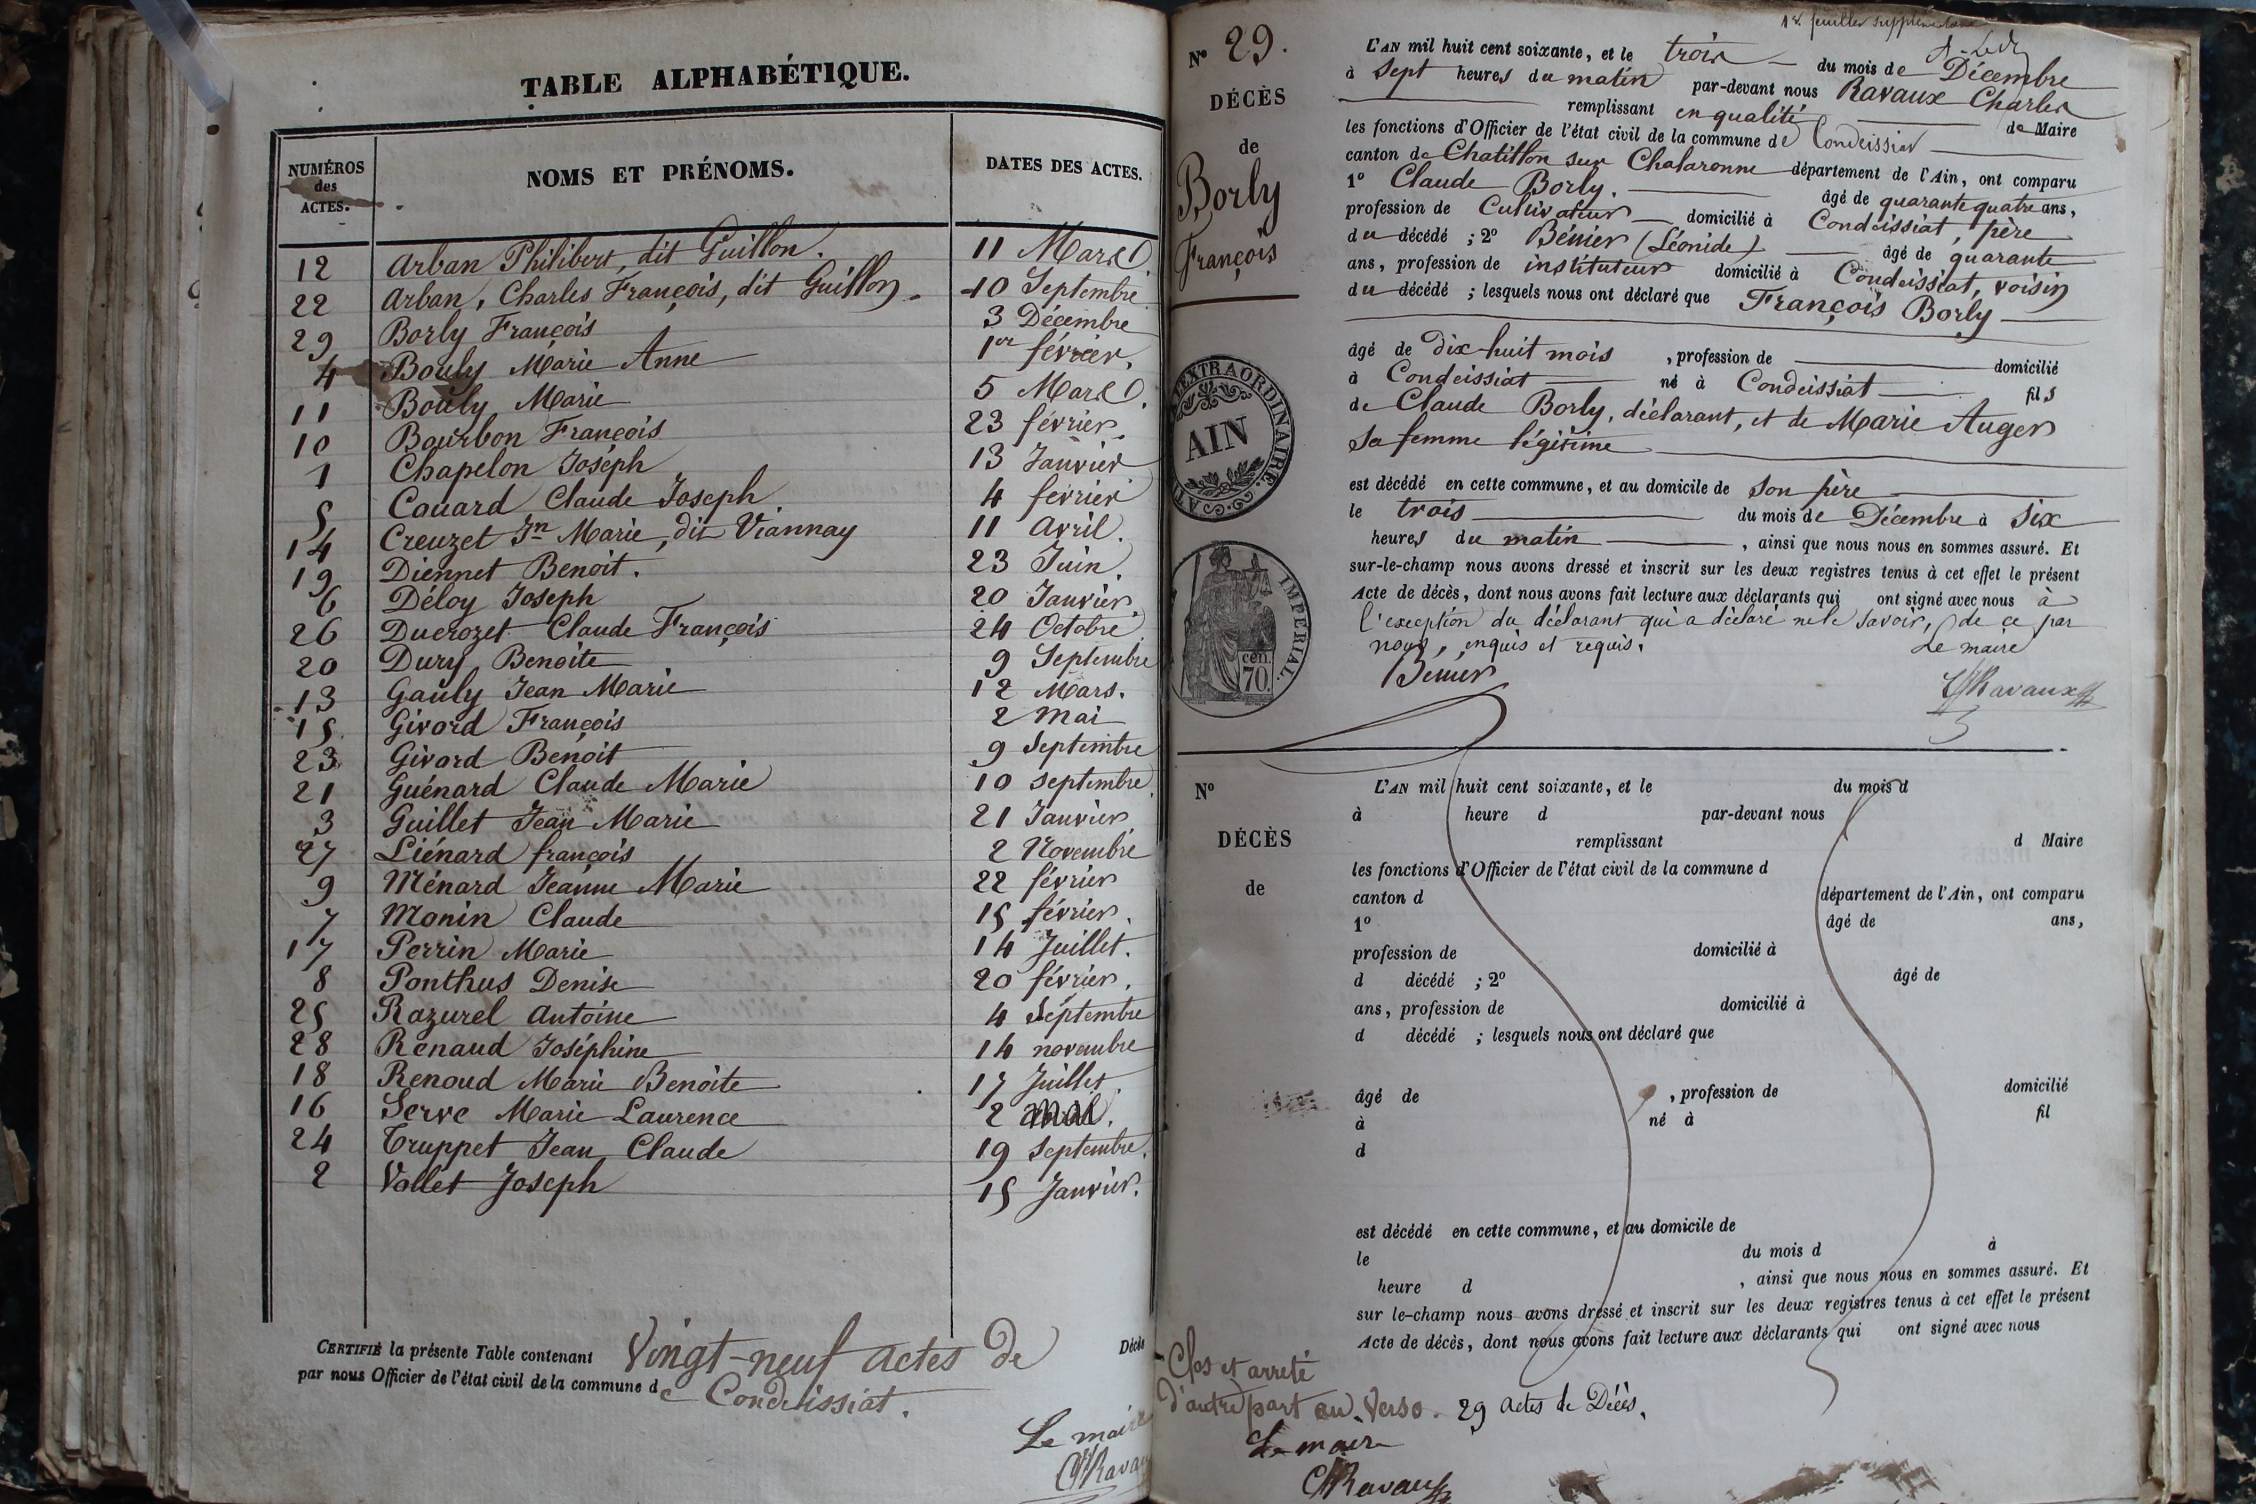 TABLE ALPHABÉTIQUE.
NUMÉROS des ACTES. NOMS ET PRÉNOMS. DATES DES ACTES.
12 Arban Philibert, dit Guillon. 11 Mars
22 Arban, Charles François, dit Guillon. 10 Septembre
29 Borly François 3 Décembre
4 Bouly Marie Anne 1er février.
11 Bouly Marie 5 Mars
10 Bourbon François 23 février.
1 Chapelon Joséph 13 Janvier
5 Couard Claude Joseph 4 février
14 Creuzet Jn Marie, dit Viannay 11 avril.
19 Diennet Benoit. 23 Juin
6 Déloy Joseph 20 Janvier.
26 Ducrozet Claude François 24 Octobre
20 Dury Benoite 9 Septembre
13 Gauly Jean Marie 12 Mars.
15 Givord François 2 Mai
23 Givord Benoit 9 Septembre
21 Guénard Claude Marie 10 septembre
3 Guillet Jean Marie 21 Janvier
27 Liénard françois 2 Novembre
9 Ménard Jeanne Marie 22 février
7 Monin Claude 15 février.
17 Perrin Marie 14 Juillet.
8 Ponthus Denise 20 février.
25 Razurel Antoine 4 Septembre
28 Renaud Joséphine 14 novembre
18 Renoud Marie Benoite 17 Juillet.
16 Serve Marie Laurence 2
24 Truppet Jean Claude 19 septembre.
2 Vallet Joseph 15 Janvier.
CERTIFIÉ la présente Table contenant Vingt-neuf actes de Décès
par nous Officier de l'état civil de la commune de Condeissiat.
Le maire
1er feuillet supplémentaire
N° 29.
DÉCÈS
de
Borly
François
L'AN mil huit cent soixante, et le trois du mois de Décembre
à sept heures du matin par-devant nous Ravaux Charles
remplissant en qualité de Maire
les fonctions d'Officier de l'état civil de la commune de Condeissiat
canton de Chatillon sur Chalaronne département de l'Ain, ont comparu
1° Claude Borly. âgé de quarante quatre ans,
profession de Cultivateur domicilié à Condeissiat, père
du décédé ; 2° Bénier (Léonide) âgé de quarante
ans, profession de instituteur domicilié à Condeissiat, voisin
du décédé ; lesquels nous ont déclaré que François Borly
âgé de dix-huit mois , profession de domicilié
à Condeissiat né à Condeissiat fils
de Claude Borly, déclarant, et de Marie Auger
sa femme légitime
est décédé en cette commune, et au domicile de son père
le trois du mois de Décembre à six
heures du matin , ainsi que nous nous en sommes assuré. Et
sur-le-champ nous avons dressé et inscrit sur les deux registres tenus à cet effet le présent
Acte de décès, dont nous avons fait lecture aux déclarants qui ont signé avec nous à
l'exception du déclarant qui a déclaré ne le savoir, de ce par
nous, enquis et requis.
Le maire
Bénier
Ravaux
EXTRAORDINAIRE
AIN
IMPÉRIAL.
cen. 70.
N°
DÉCÈS
de
L'AN mil huit cent soixante, et le du mois d
à heure d par-devant nous
remplissant d Maire
les fonctions d'Officier de l'état civil de la commune d
canton d département de l'Ain, ont comparu
1° âgé de ans,
profession de domicilié à
d décédé ; 2° âgé de
ans, profession de domicilié à
d décédé ; lesquels nous ont déclaré que
âgé de , profession de domicilié
à né à fil
d
est décédé en cette commune, et au domicile de
le du mois d à
heure d , ainsi que nous nous en sommes assuré. Et
sur le-champ nous avons dressé et inscrit sur les deux registres tenus à cet effet le présent
Acte de décès, dont nous avons fait lecture aux déclarants qui ont signé avec nous
Clos et arreté
d'autre part au Verso. 29 actes de Décès.
Le maire
Ravaux